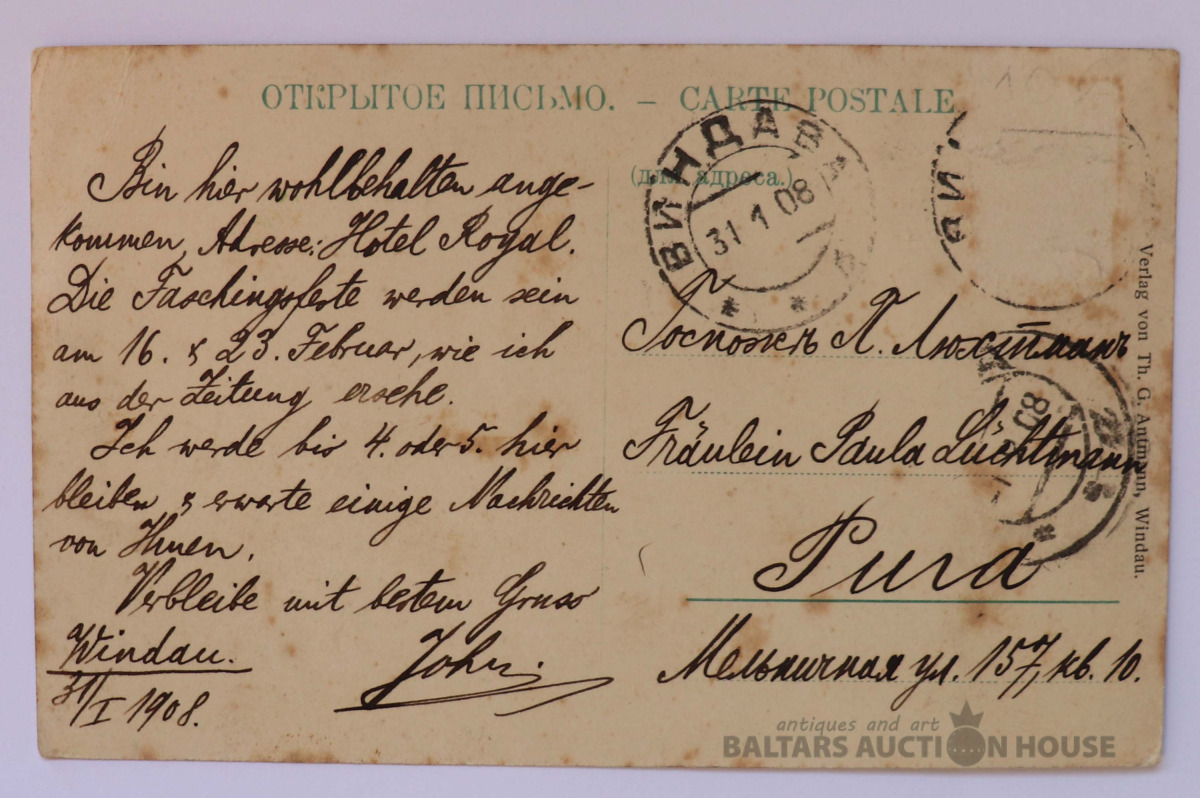 ОТКРЫТОЕ ПИСЬМО. – CARTE POSTALE
(для адреса.)
Bin hier wohlbehalten ange-
kommen, Adresse: Hotel Royal.
Die Faschingsfeste werden sein
am 16. & 23. Februar, wie ich
aus der Zeitung ersehe.
Ich werde bis 4. oder 5. hier
bleiben & erwarte einige Nachrichten
von Ihnen.
Verbleibe mit bestem Gruss
John.
Windau.
31/I 1908.
ВИНДАВА
31 1 08
ВИ
08
Госпожѣ П. Люхтманъ
Fräulein Paula Lüchtmann
Рига
Мельничная ул. 157, кв. 10.
Verlag von Th. G. Antmann, Windau.
antiques and art
BALTARS AUCTION HOUSE